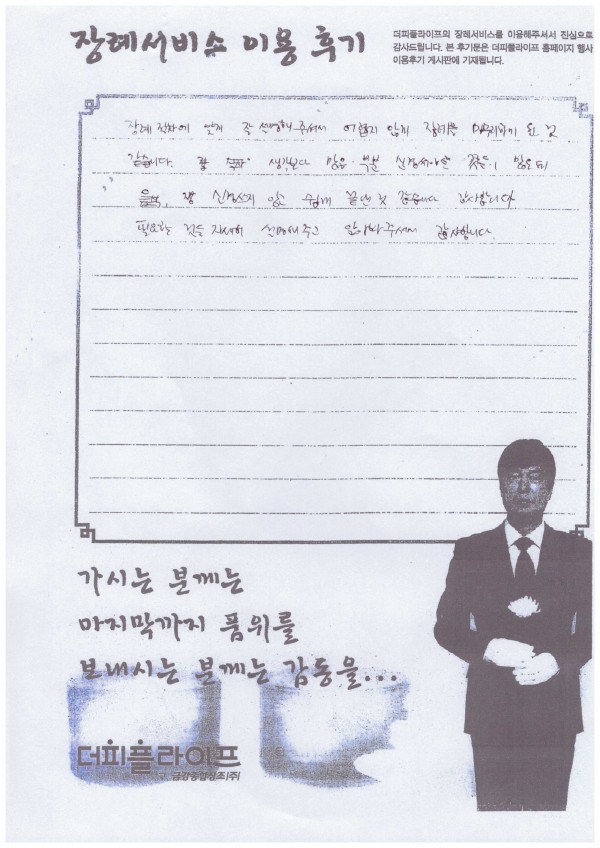 장례서비스 이용 후기
더피플라이프의 장례서비스를 이용해주셔서 진심으로
감사드립니다. 본 후기문은 더피플라이프 홈페이지 행사
이용후기 게시판에 기재됩니다.
장례 절차에 맞게 잘 설명해 주셔서 어렵지 않게 장례를 마무리하게 된 것
같습니다. 생각보다 많은 부분 신경써야할 것들이 많은데
신경쓰지 않고 쉽게 끝낸 것 같습니다 감사합니다
필요한 것들 자세히 설명해주고 알아봐주셔서 감사합니다.
가시는 분께는
마지막까지 품위를
보내시는 분께는 감동을...
더피플라이프
금강종합상조(주)